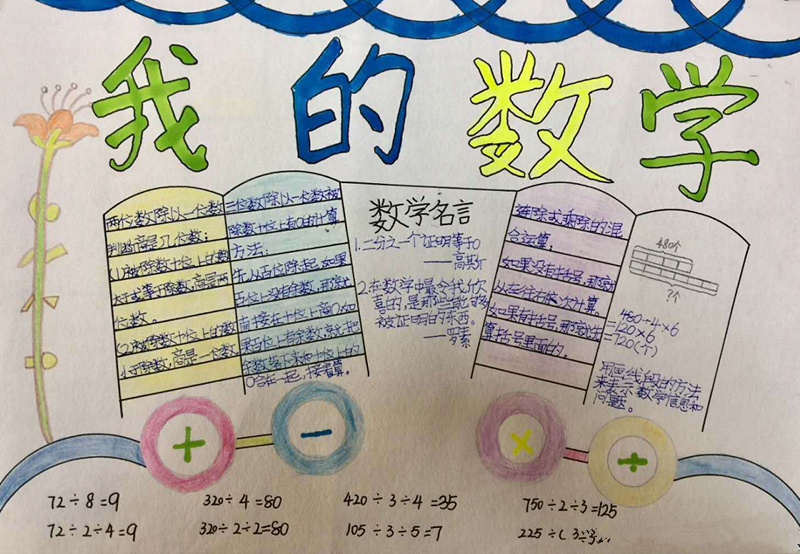 我的数学
两位数除以一位数
判断商是几位数:
(1)被除数十位上的数
大于或等于除数,商是两
位数。
(2)被除数十位上的数
小于除数,商是一位数
三位数除以一位数被
除数十位上有0的计算
方法:
先从百位除起,如果
百位上没有余数,那就
直接在十位上商0,如
果百位上有余数,就把
余数落下来和十位上的
0合在一起,接着算。
数学名言
1.二分之一个证明等于0
——高斯
2.在数学中最令我欣
喜的,是那些能够
被证明的东西。
——罗素
连除或乘除的混
合运算。
如果没有括号,那就
从左往右依次计算。
如果有括号,那就先
算括号里面的。
480个
?个
480÷4×6
=120×6
=720(个)
用画线段的方法
来表示数学信息和
问题。
+
−
×
÷
72÷8=9
320÷4=80
420÷3÷4=35
750÷2÷3=125
72÷2÷4=9
320÷2÷2=80
105÷3÷5=7
225÷(3